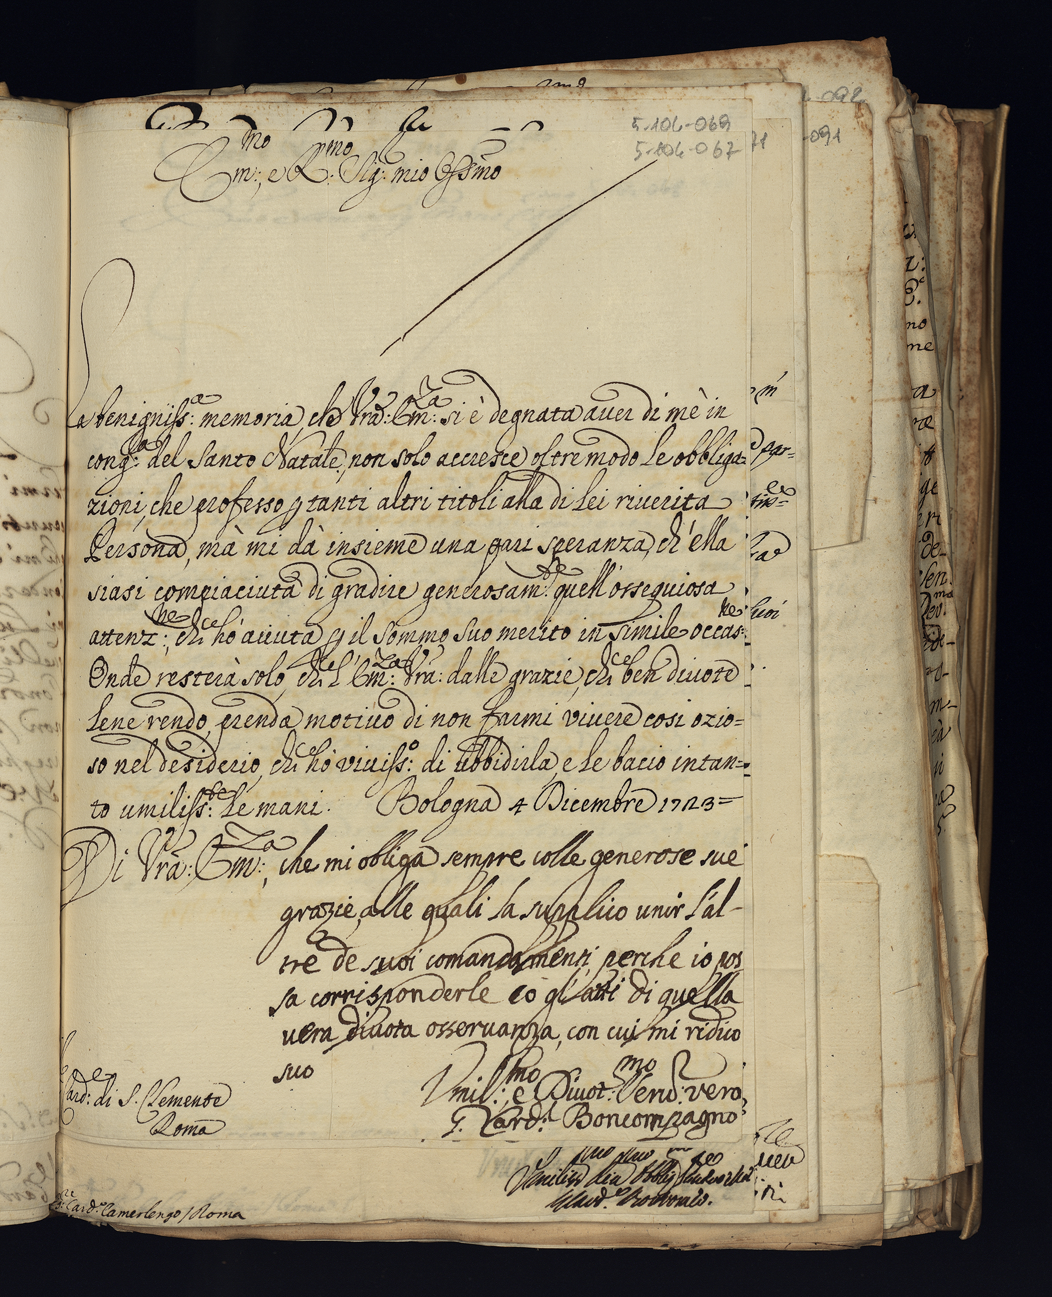 5-104-069
5-104-067
71
-091
Em:mo e R:mo Sig: mio Ossmo
La benigniss:a memoria, che Vra: Em:za si è degnata aver di mè in
cong:a del Santo Natale, non solo accresce oltremodo le obbliga=
zioni, che professo p tanti altri titoli alla di Lei riverita
Persona, mà mi dà insieme una pari speranza, ch'ella
siasi compiaciuta di gradire generosam:te quell'ossequiosa
attenz:ne, che hò avuta p il sommo suo merito in simile occas:ne
Onde resterà solo, che l'Em:za Vra: dalle grazie, che ben divote
Lene rendo, prenda motivo di non farmi vivere così ozio=
so nel desiderio, che hò viviss:o di ubbidirla, e le bacio intan=
to umiliss:te le mani. Bologna 4 Dicembre 1723=
Di Vra: Em:za, che mi obliga sempre colle generose sue
grazie, alle quali la supplico unir l'al-
tre de suoi comandamenti, perche io pos
sa corrisponderle co gl'atti di quella
vera divota osservanza, con cui mi ridico
suo
Card:e di S. Clemente
Roma
Vmil:mo e Divot:mo Serv:r vero
G. Card:l Boncompagno
Card.e Camerlengo / Roma